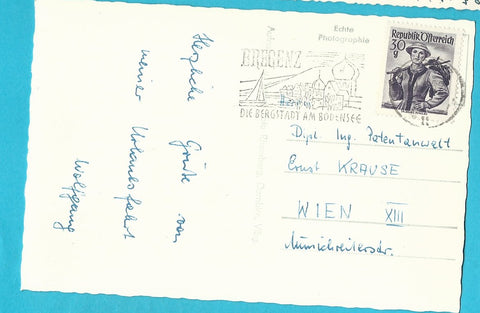 Herzliche
Grüße von
meiner Urlaubsfahrt
Wolfgang
Echte
Photographie
Republik Österreich
30
g
BREGENZ
DIE BERGSTADT AM BODENSEE
Herrn
Dipl. Ing. Patentanwalt
Ernst KRAUSE
WIEN XIII